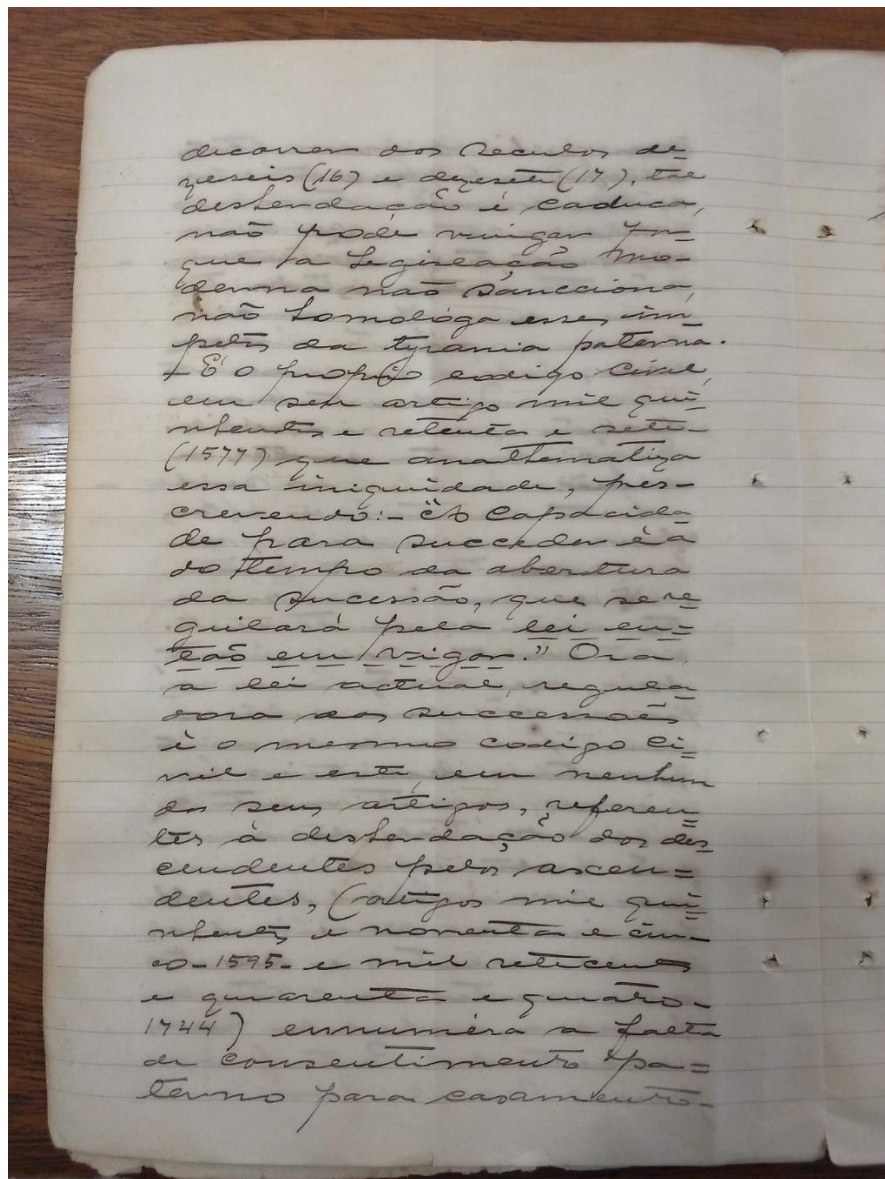 decorrer dos seculos de-
zeseis (16) e dezesete (17), tal
desherdação é caduca,
não póde vingar por-
que a Legislação mo-
derna não sancciona,
não homológa esses im
petos da tyrania paterna.
- É o proprio codigo civil,
em seu artigo mil qui=
nhentos e setenta e sete -
(1577) que anathematiza
essa iniquidade, pres-
crevendo: - "A capacida-
de para succeder é a
do tempo da abertura
da sucessão, que se re=
gulará pela lei en=
tão em vigor." Ora,
a lei actual, regula
dora das successões
é o mesmo codigo ci=
vil e este, em nenhum
dos seus artigos, referen=
tes á desherdação dos des=
cendentes pelos ascen=
dentes, (artigos mil qui=
nhentos e noventa e cin-
co - 1595 - e mil setecentos
e quarenta e quatro -
1744) ennuméra a falta
de consentimento pa=
terno para casamento -